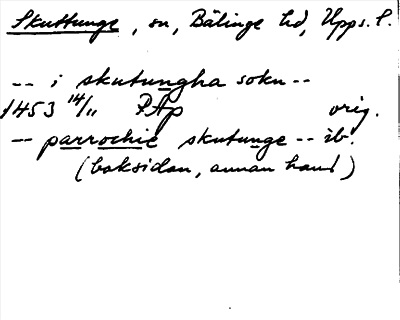 Skuttunge, sn, Bälinge hd, Upps. l.
-- i skutungha sokn --
1453 14/11 PAp orig.
-- parrochie skutunge -- ib.
(baksidan, annan hand)